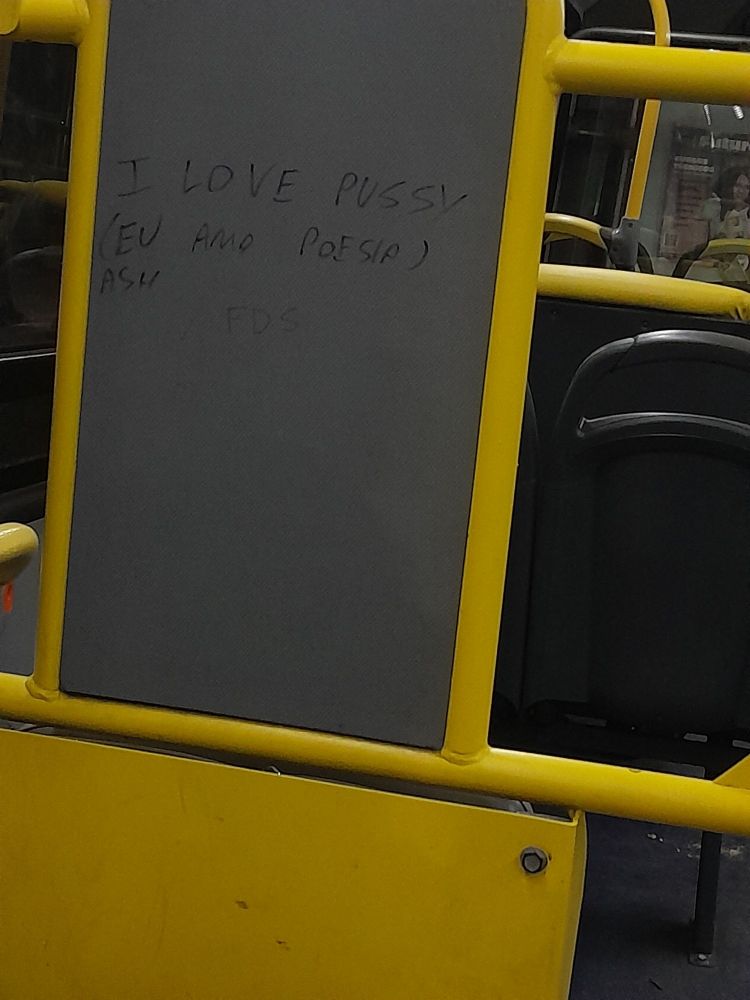 I LOVE PUSSY
(EU AMO POESIA)
ASH
FDS